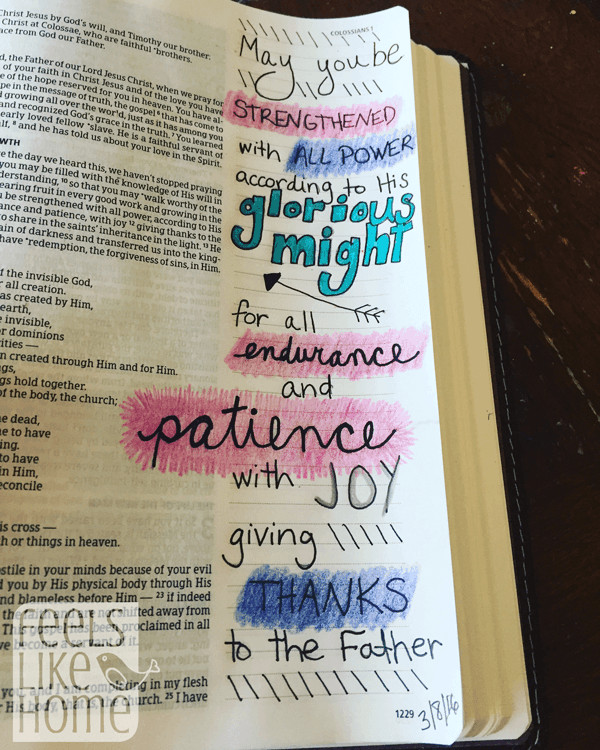 Christ Jesus by God's will, and Timothy our brother.
Christ at Colossae, who are faithful brothers.
ace from God our Father.
d, the Father of our Lord Jesus Christ, when we pray for
of your faith in Christ Jesus and of the love you have
e of the hope reserved for you in heaven. You have al-
pe in the message of truth, the gospel 6 that has come to
d growing all over the world, just as it has among you
and recognized God's grace in the truth. 7 You learned
early loved fellow slave. He is a faithful servant of
lf, 8 and he has told us about your love in the Spirit.
WTH
e the day we heard this, we haven't stopped praying
you may be filled with the knowledge of His will in
derstanding, 10 so that you may walk worthy of the
earing fruit in every good work and growing in the
be strengthened with all power, according to His
ance and patience, with joy 12 giving thanks to the
to share in the saints' inheritance in the light. 13 He
ain of darkness and transferred us into the king-
have redemption, the forgiveness of sins, in Him.
f the invisible God,
r all creation.
as created by Him,
earth,
e invisible,
r dominions
ities —
n created through Him and for Him.
ngs,
gs hold together.
of the body, the church;
e dead,
e to have
ing.
to have
in Him,
econcile
is cross —
h or things in heaven.
ostile in your minds because of your evil
d you by His physical body through His
nd blameless before Him — 23 if indeed
the faith and are not shifted away from
This gospel has been proclaimed in all
ve become a servant of it.
you, and I am completing in my flesh
His body, that is, the church. 25 I have
COLOSSIANS 1
May you be
STRENGTHENED
with ALL POWER
according to His
glorious
might
for all
endurance
and
patience
with JOY
giving
THANKS
to the Father
1229 3/8/16
feels
like
home